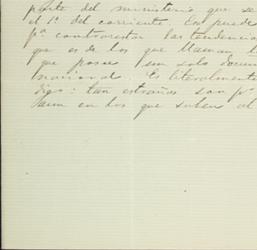 parte del ministerio que se
el 1º del corriente. Con puede
pª contrarestar las tendencias
que es de los que llaman
que posee un solo docum
nacional. Es literalmente
digo: tan estraños son pª
en los que suben al